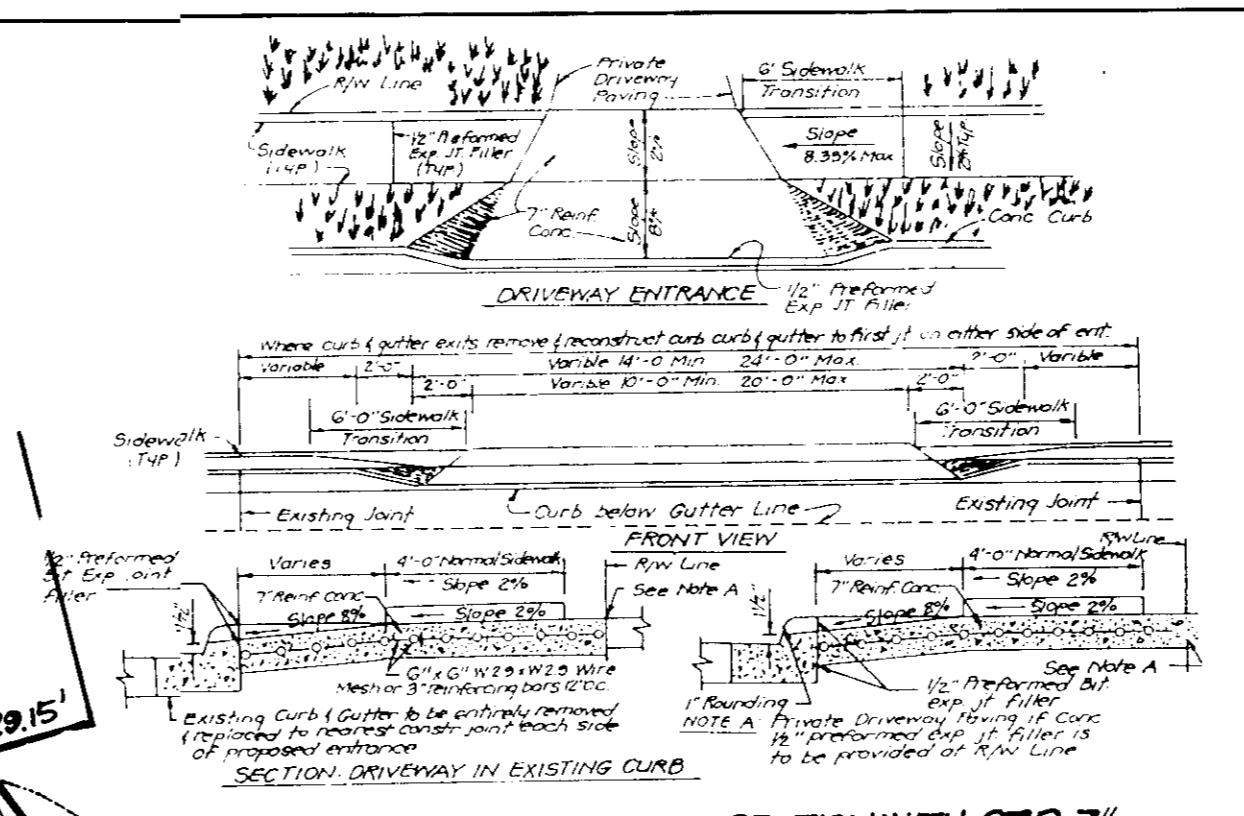 R/W Line
Private
Driveway
Paving
6' Sidewalk
Transition
Sidewalk
(TYP)
1/2" Preformed
Exp. JT. Filler
(TYP)
Slope
2%
Slope
8.33% Max
Slope
2% TYP
7" Reinf.
Conc.
Slope
8%
Conc Curb
DRIVEWAY ENTRANCE
1/2" Preformed
Exp JT Filler
Where curb & gutter exits remove & reconstruct curb curb & gutter to first jt on either side of ent.
Variable 2'-0" Varible 14'-0 Min 24'-0" Max. 2'-0" Varible
2'-0" Varible 10'-0" Min. 20'-0" Max 2'-0"
6'-0" Sidewalk
Transition
6'-0" Sidewalk
Transition
Sidewalk
(TYP)
Existing Joint
Curb below Gutter Line
Existing Joint
FRONT VIEW
1/2" Preformed
Exp Joint
Filler
Varies
4'-0" Normal Sidewalk
Slope 2%
R/W Line
See Note A
7" Reinf Conc
Slope 8%
Slope 2%
1 1/2"
6" x 6" W2.9 x W2.9 Wire
Mesh or 3" reinforcing bars 12" O.C.
Existing Curb & Gutter to be entirely removed
& replaced to nearest constr joint each side
of proposed entrance
SECTION. DRIVEWAY IN EXISTING CURB
R/W Line
Varies
4'-0" Normal Sidewalk
Slope 2%
7" Reinf. Conc
Slope 8%
Slope 2%
1 1/2"
See Note A
1/2" Preformed Bit.
exp. jt filler
1" Rounding
NOTE A: Private Driveway Paving if Conc
1/2" preformed exp jt. filler is
to be provided at R/W Line
29.15'